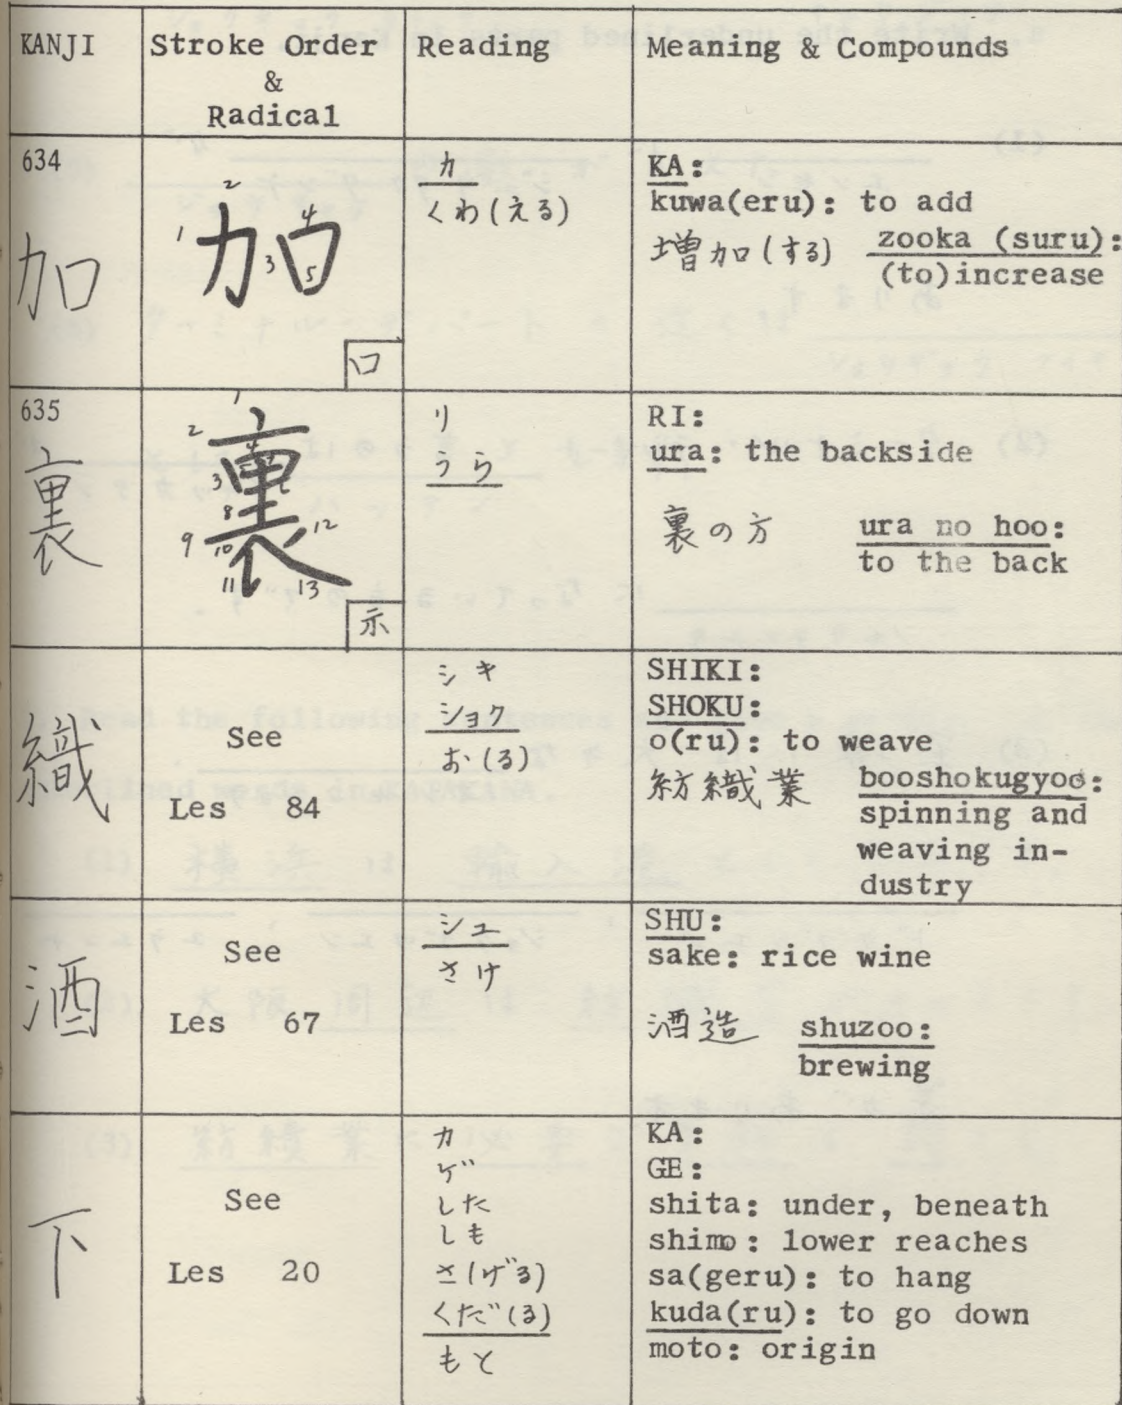 KANJI
Stroke Order
&
Radical
Reading
Meaning & Compounds
634
加
1 2 3 4 5
加
口
カ
くわ(える)
KA:
kuwa(eru): to add
増加(する) zooka (suru):
(to)increase
635
裏
裏
1
2
3
8
9
10
11
12
13
示
リ
うら
RI:
ura: the backside
裏の方 ura no hoo:
to the back
織
See
Les 84
シキ
ショク
お(る)
SHIKI:
SHOKU:
o(ru): to weave
紡織業 booshokugyoo:
spinning and
weaving in-
dustry
酒
See
Les 67
シュ
さけ
SHU:
sake: rice wine
酒造 shuzoo:
brewing
下
See
Les 20
カ
ゲ
した
しも
さ(げる)
くだ(る)
もと
KA:
GE:
shita: under, beneath
shimo: lower reaches
sa(geru): to hang
kuda(ru): to go down
moto: origin